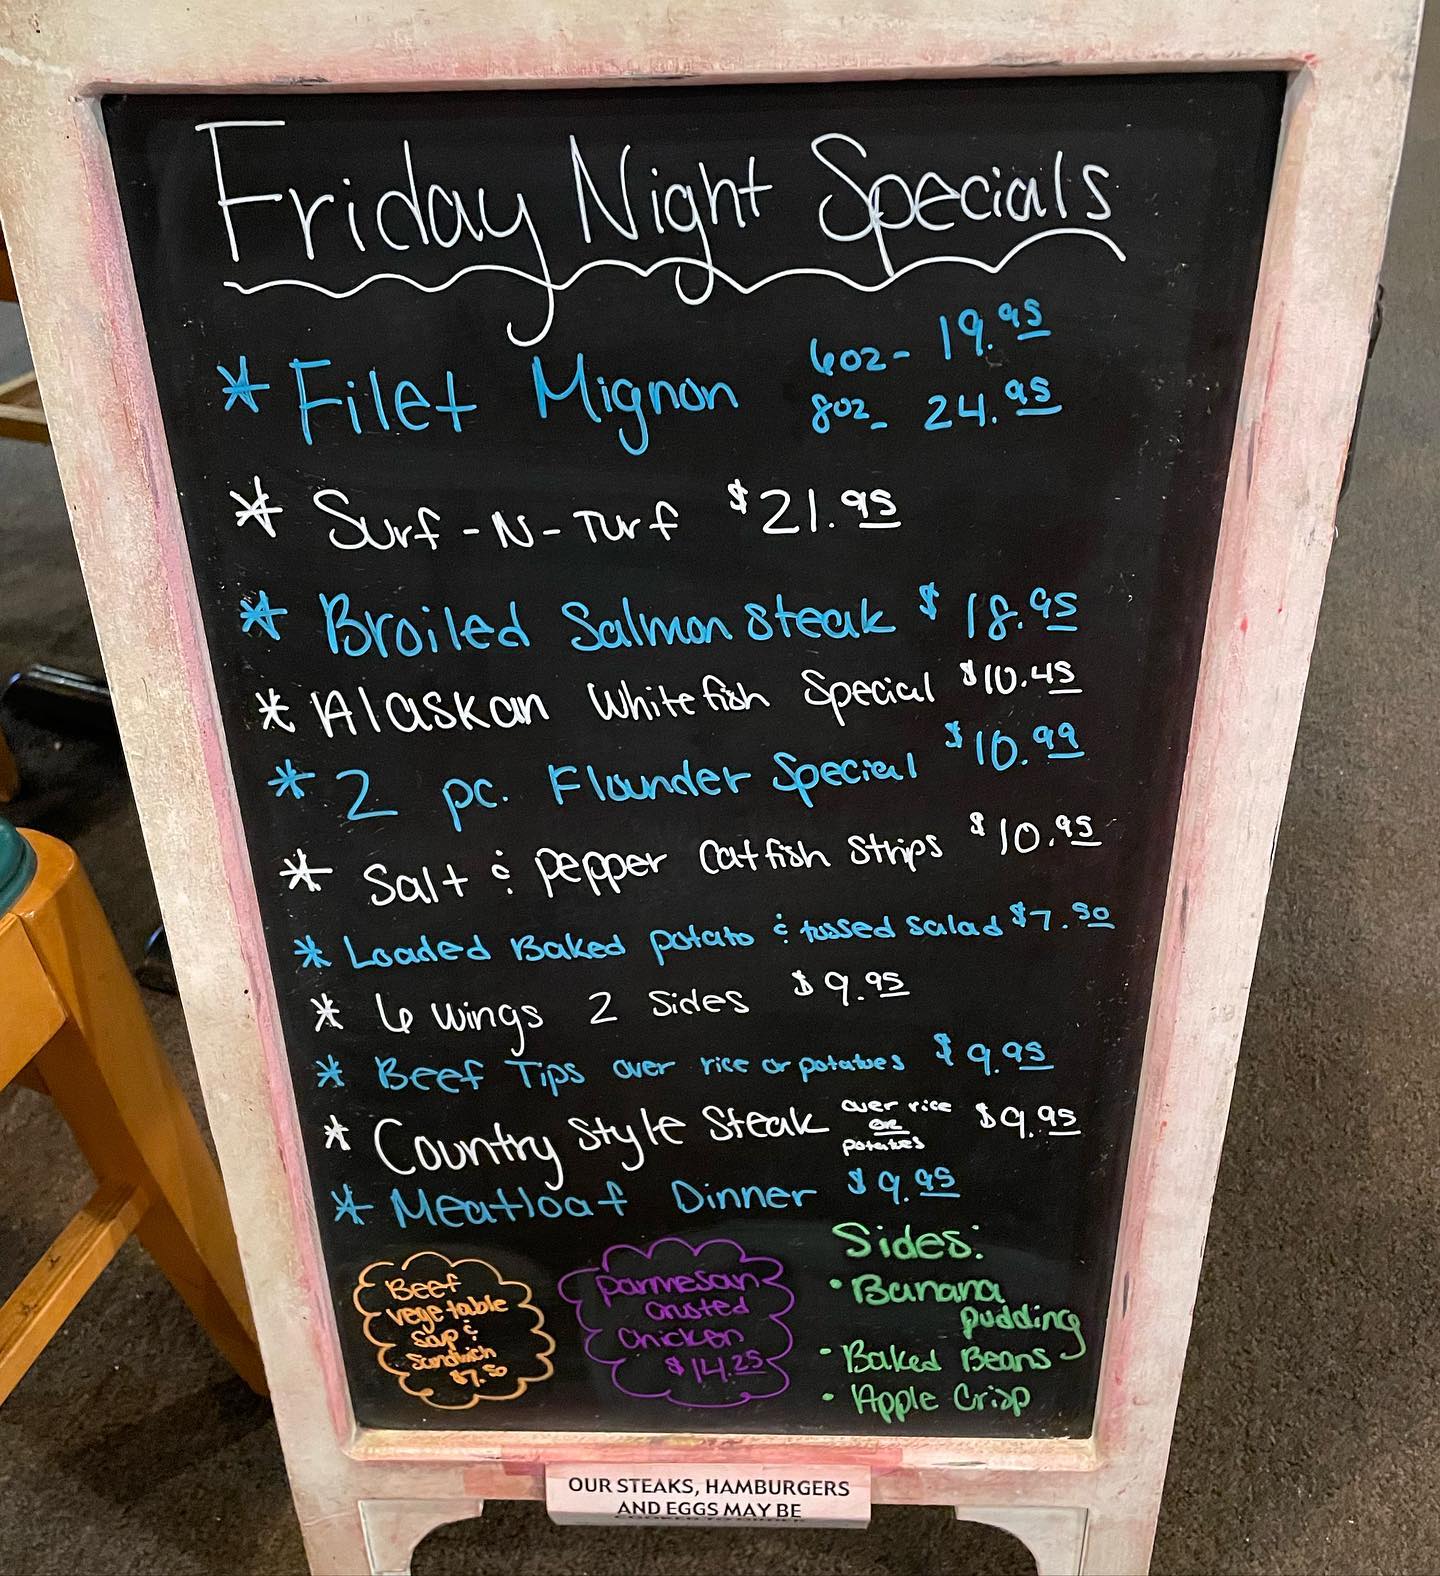 Friday Night Specials
* Filet Mignon 6oz- 19.95
8oz- 24.95
* Surf-N-Turf $21.95
* Broiled Salmon steak $18.95
* Alaskan Whitefish Special $10.45
* 2 pc. Flounder Special $10.99
* Salt & pepper Catfish Strips $10.95
* Loaded Baked potato & tossed salad $7.50
* 6 wings 2 Sides $9.95
* Beef Tips over rice or potatoes $9.95
* Country Style Steak over rice or potatoes $9.95
* Meatloaf Dinner $9.95
Beef
vegetable
Soup &
Sandwich
$7.50
Parmesan
crusted
Chicken
$14.25
Sides:
• Banana
pudding
• Baked Beans
• Apple Crisp
OUR STEAKS, HAMBURGERS
AND EGGS MAY BE